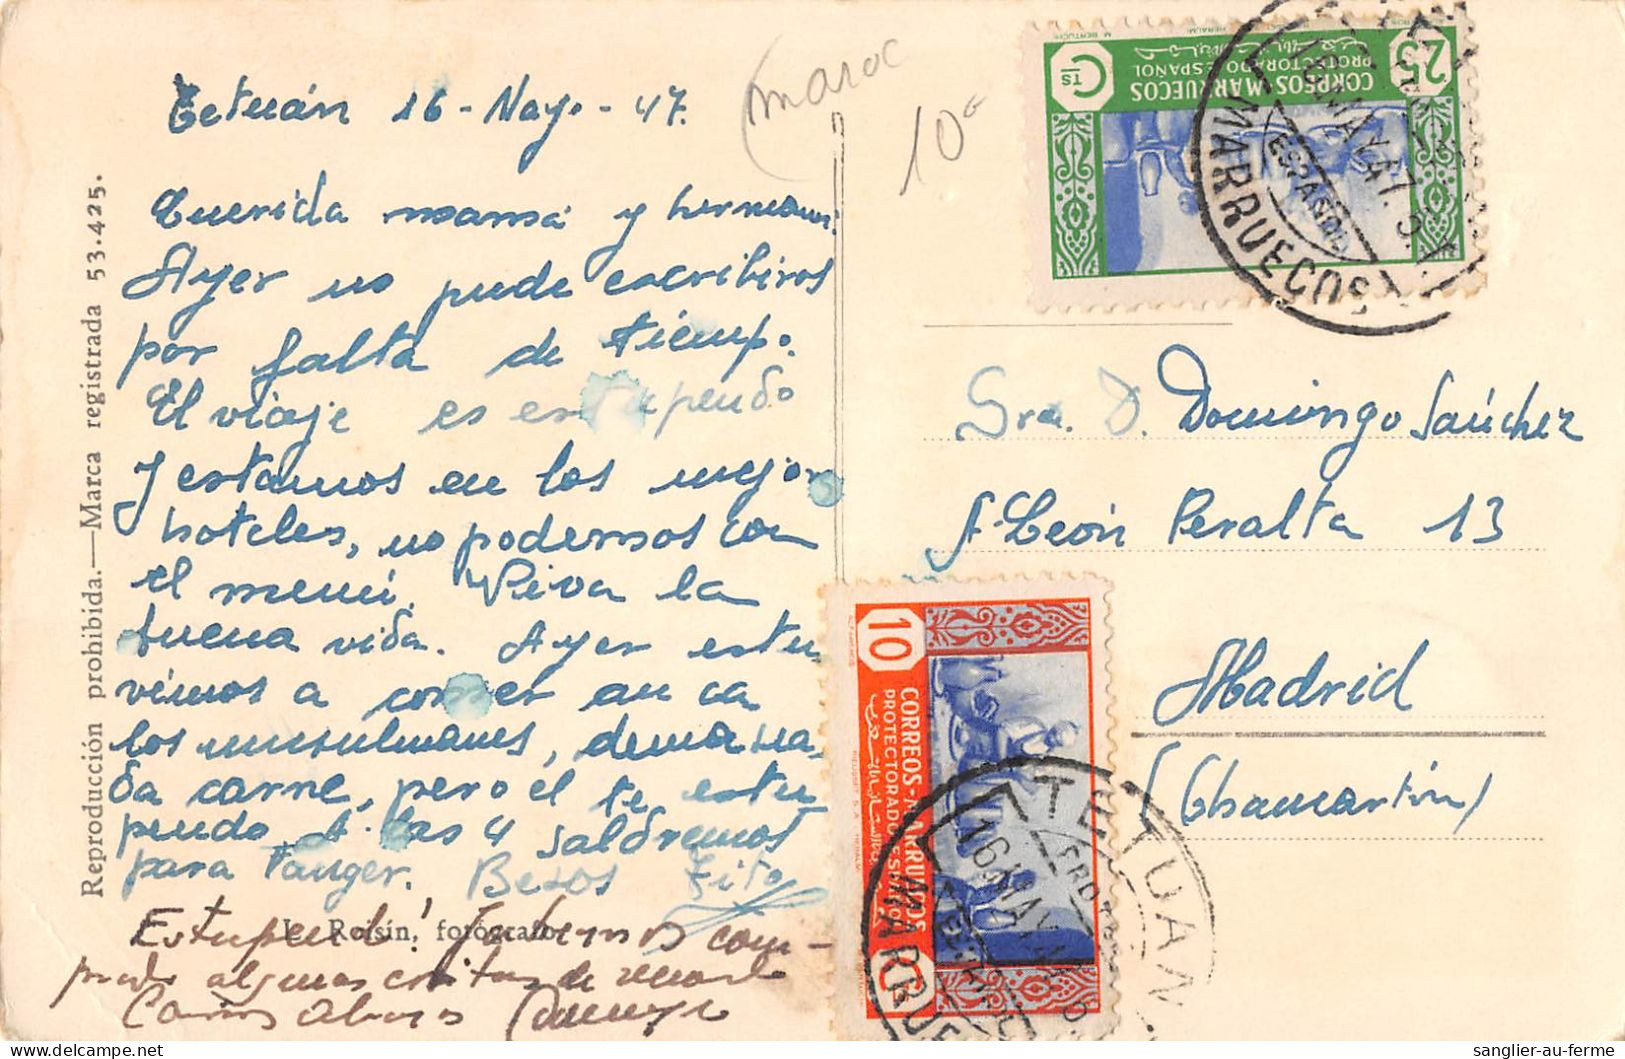 Tetuán 16 - Mayo - 47.
Querida mamá y hermanos:
Ayer no pude escribiros
por falta de tiempo.
El viaje es estupendo
y estamos en los mejores
hoteles, no podemos con
el menú. Viva la
buena vida. Ayer estu
vimos a comer en ca
los musulmanes, demasia
da carne, pero el te estu
pendo. A las 4 saldremos
para Tanger. Besos Tito
Estupendo! hemos com-
prado algunas cositas de
L. Roisin, fotógrafo
Reproducción prohibida.—Marca registrada 53.425.
maroc
10€
25 Cts
CORREOS-MARRUECOS
PROTECTORADO ESPAÑOL
M. BERTUCHI
MARRUECOS
16 MAY 47
ESPAÑOL
Sra. D. Domingo Sánchez
León Peralta 13
Madrid
(Chamartín)
10 Cs
CORREOS-MARRUECOS
PROTECTORADO ESPAÑOL
TETUAN
16 MAY 47
MARRUECOS
sanglier-au-ferme